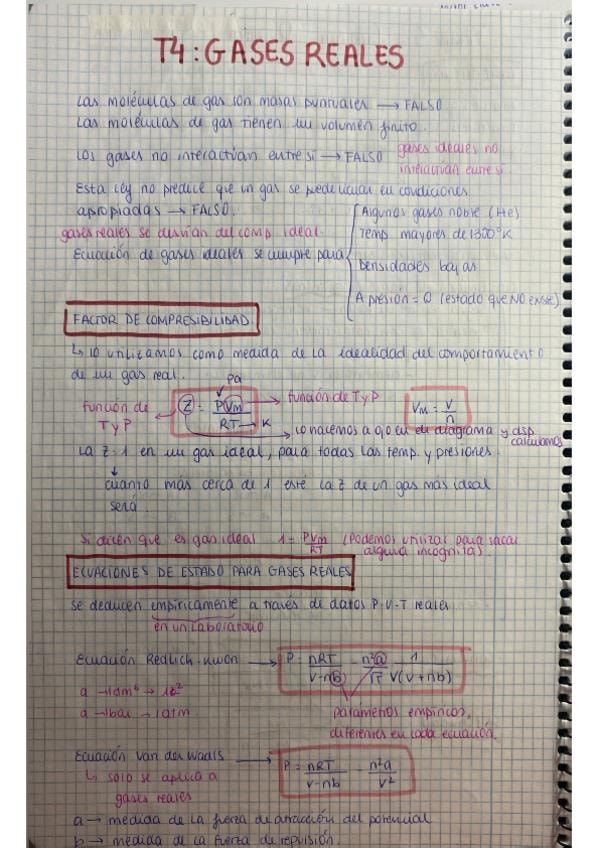 T4: GASES REALES
Las moléculas de gas son masas puntuales → FALSO
Las moléculas de gas tienen un volumen finito.
Los gases no interactúan entre sí → FALSO gases ideales no interactúan entre sí
Esta ley no predice que un gas se puede licuar en condiciones
apropiadas → FALSO.
gases reales se desvían del comp. ideal.
Ecuación de gases ideales se cumple para
Algunos gases noble (He)
Temp. mayores de 1300°K
Densidades bajas
A presión = 0 (estado que NO existe)
FACTOR DE COMPRESIBILIDAD
↳ lo utilizamos como medida de la idealidad del comportamiento
de un gas real.
Pa
función de T y P
Z = PVm / RT → K
función de T y P
Vm = V/n
lo hacemos a ojo en el diagrama y dsp calculamos
La Z=1 en un gas ideal, para todas las temp. y presiones.
↓
cuanto más cerca de 1 esté la Z de un gas más ideal
será.
Si dicen que es gas ideal 1 = PVm/RT (Podemos utilizar para sacar
alguna incógnita).
ECUACIONES DE ESTADO PARA GASES REALES
Se deducen empíricamente a través de datos P-V-T reales
en un laboratorio
Ecuación Redlich-Kwon → P = nRT/(V-nb) - n²a/√T 1/V(V+nb)
a → 1dm⁶ →
a → 1bar → 1atm.
parámetros empíricos,
diferentes en cada ecuación.
Ecuación Van der Waals → P = nRT/(V-nb) - n²a/V²
↳ solo se aplica a
gases reales
a → medida de la fuerza de atracción del potencial
b → medida de la fuerza de repulsión.